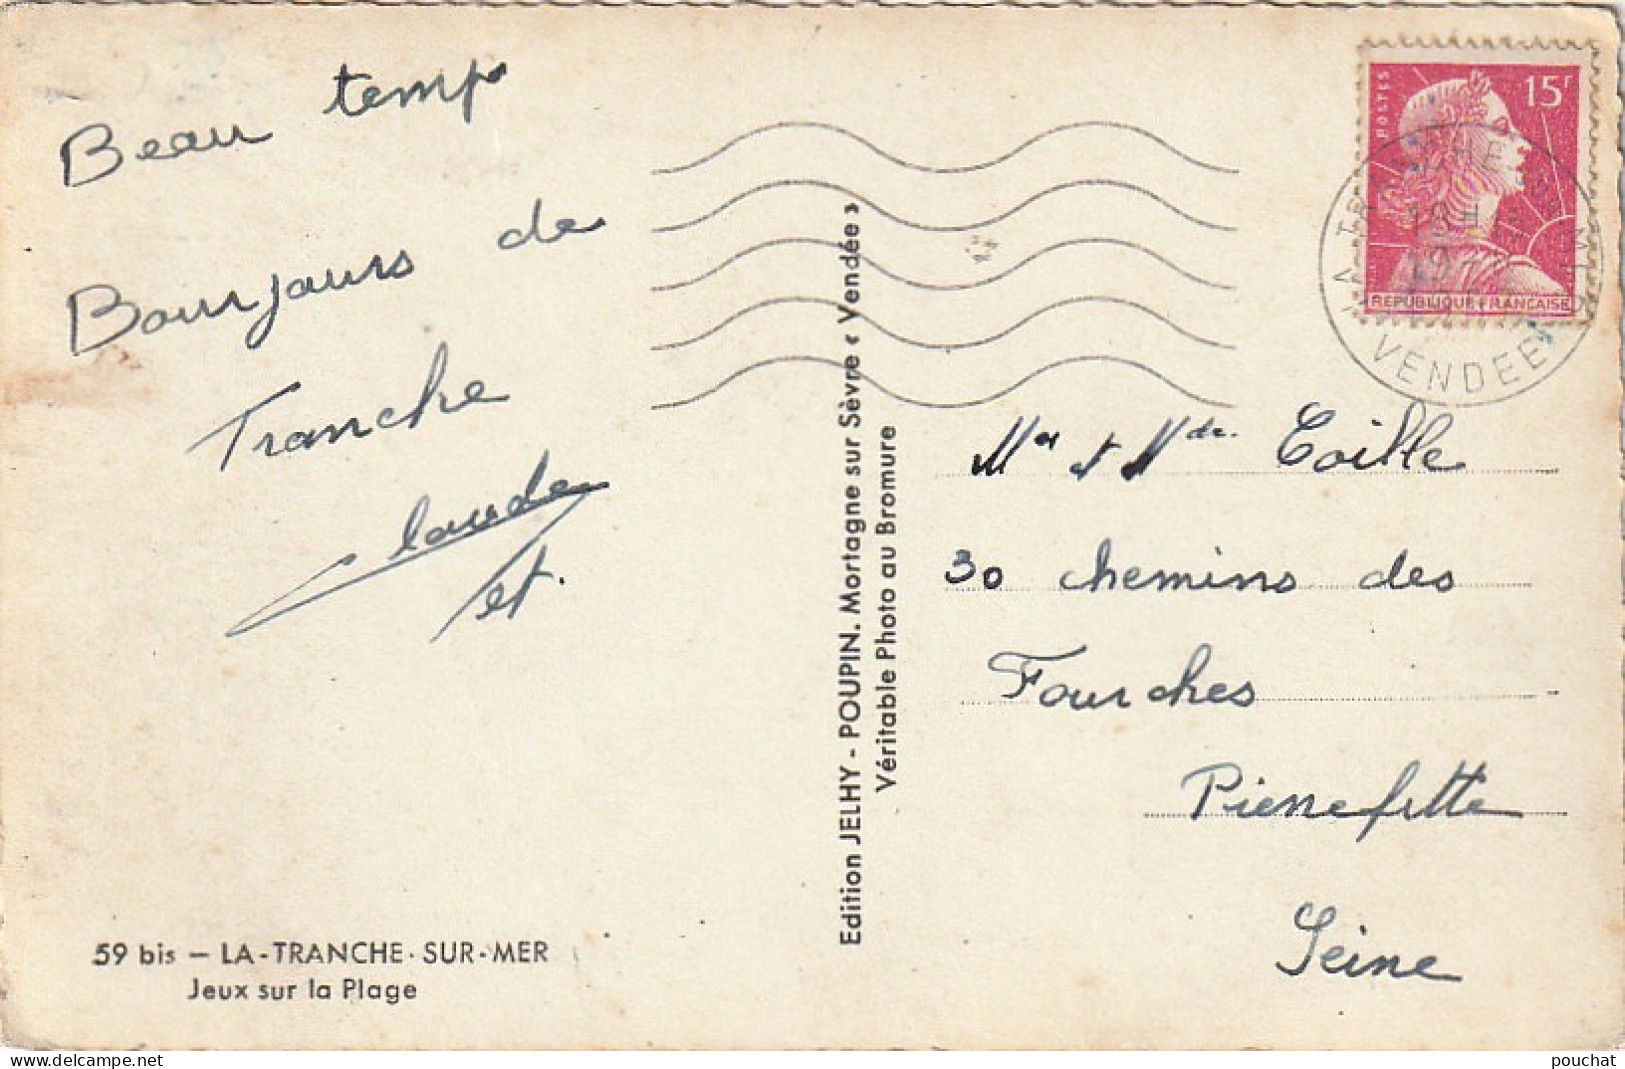 Beau temps
Bourjours de
Tranche
Claude
et.
59 bis — LA-TRANCHE-SUR-MER
Jeux sur la Plage
Edition JELHY - POUPIN. Mortagne sur Sèvre « Vendée »
Véritable Photo au Bromure
POSTES
15F
REPUBLIQUE FRANÇAISE
LA TRANCHE SUR MER
18 H
VENDEE
Mr et Mde. Coille
30 chemins des
Fourches
Pierrefitte
Seine
pouchat